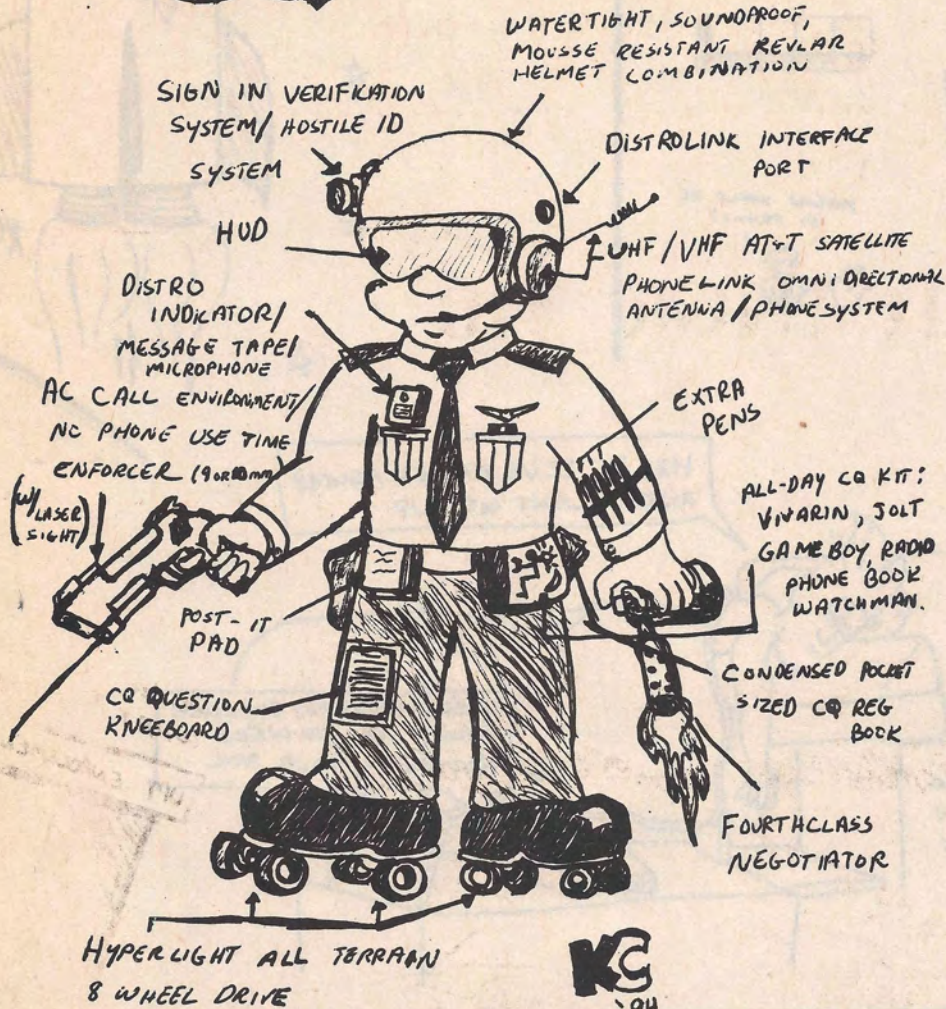 WATERTIGHT, SOUNDPROOF,
MOUSSE RESISTANT REVLAR
HELMET COMBINATION
SIGN IN VERIFICATION
SYSTEM/ HOSTILE ID
SYSTEM
DISTROLINK INTERFACE
PORT
HUD
UHF/VHF AT&T SATELLITE
PHONELINK OMNIDIRECTIONAL
ANTENNA/PHONESYSTEM
DISTRO
INDICATOR/
MESSAGE TAPE/
MICROPHONE
AC CALL ENVIRONMENT/
NO PHONE USE TIME
ENFORCER (9 OR 10mm)
(W/ LASER
SIGHT)
EXTRA
PENS
ALL-DAY CQ KIT:
VIVARIN, JOLT
GAMEBOY, RADIO
PHONE BOOK
WATCHMAN.
POST-IT
PAD
CQ QUESTION
KNEEBOARD
CONDENSED POCKET
SIZED CQ REG
BOOK
FOURTHCLASS
NEGOTIATOR
HYPERLIGHT ALL TERRAIN
8 WHEEL DRIVE
KC
'94